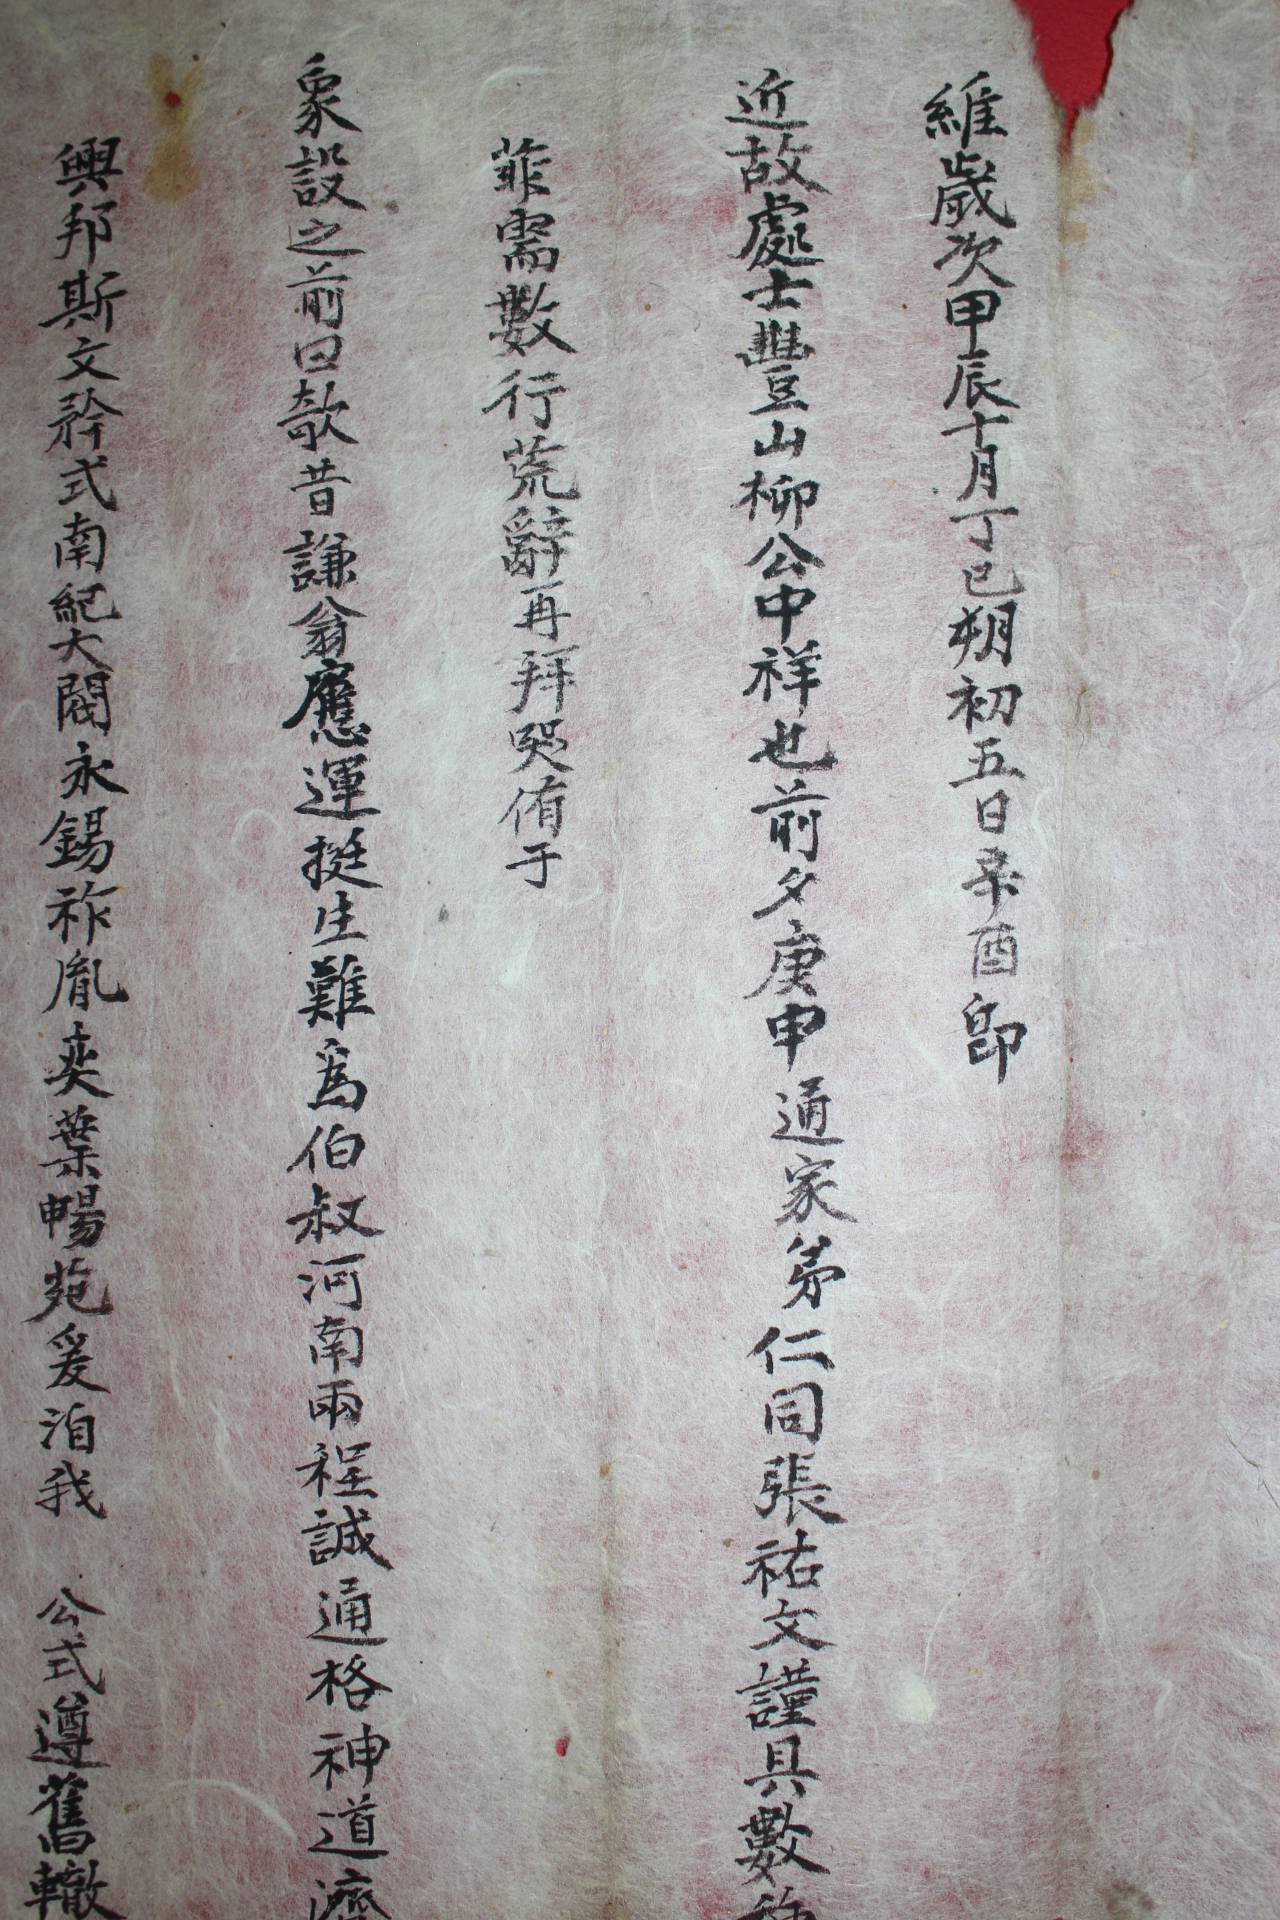 維歲次甲辰十月丁巳朔初五日辛酉卽
近故處士豐山柳公中祥也前夕庚申通家弟仁同張祐文謹具數種
菲需數行荒辭再拜哭侑于
象設之前曰欹昔謙翁應運挺生難爲伯叔河南兩程誠通格神道濟
興邦斯文矜式南紀大閥永錫祚胤奕葉暢苑爰洎我 公式遵舊轍